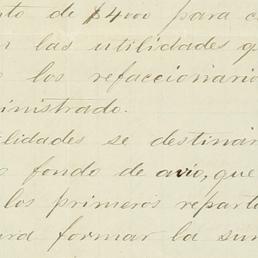 nto de $4000 para c
n las utilidades q
o los refaccionario
ministrado.
ilidades se destinar
o fondo de avío, que
los primeros reparto
ara formar la sum